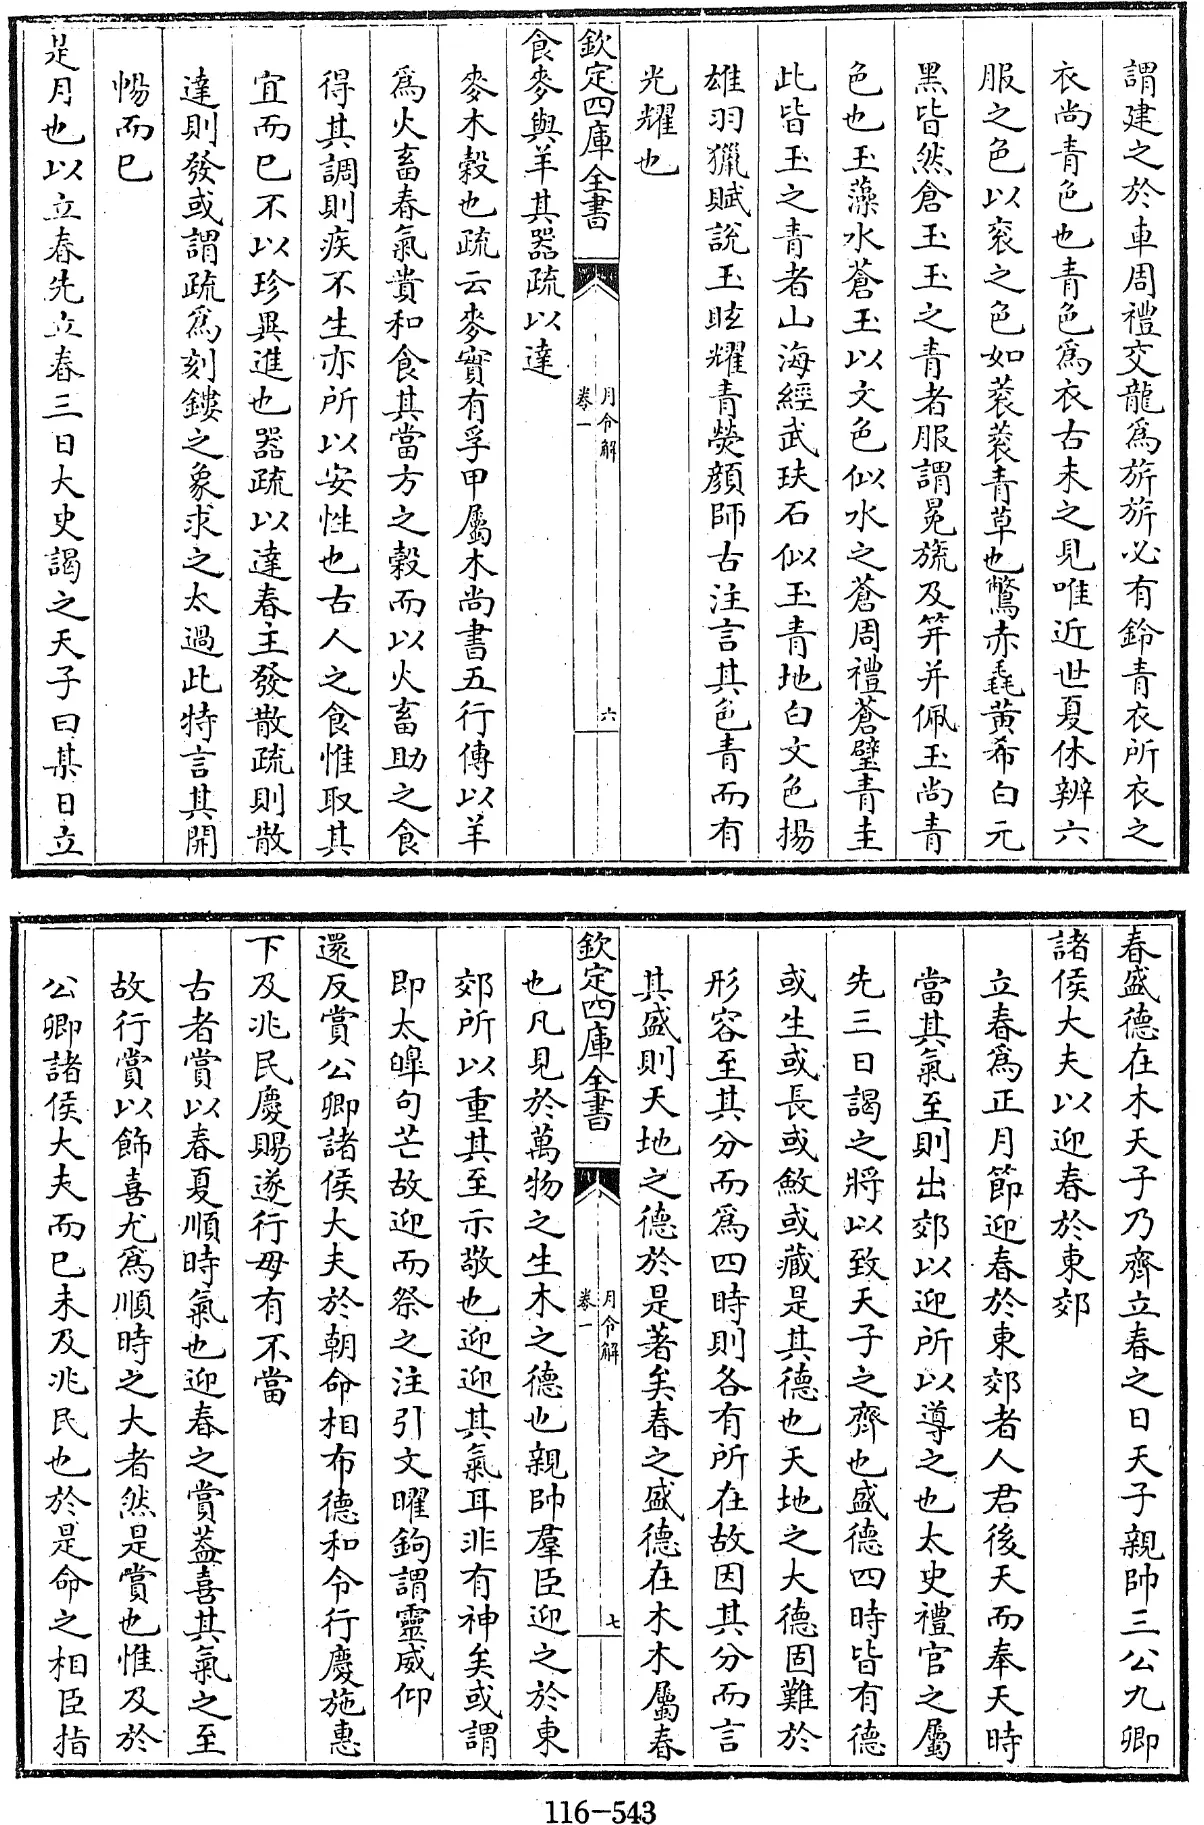 謂建之於車周禮交龍為旂旂必有鈴青衣所衣之
衣尚青色也青色為衣古未之見唯近世夏休辨六
服之色以衮之色如蔉蔉青草也鷩赤毳黄希白元
黑皆然倉玉玉之青者服謂冕旒及笄并佩玉尚青
色也玉藻水蒼玉以文色似水之蒼周禮蒼璧青圭
此皆玉之青者山海經武玞石似玉青地白文色揚
雄羽獵賦說玉眩耀青熒顔師古注言其色青而有
光耀也
欽定四庫全書
月令解
卷一
六
食麥與羊其器疏以達
麥木穀也疏云麥實有孚甲屬木尚書五行傳以羊
為火畜春氣貴和食其當方之穀而以火畜助之食
得其調則疾不生亦所以安性也古人之食惟取其
宜而已不以珍異進也器疏以達春主發散疏則散
達則發或謂疏為刻鏤之象求之太過此特言其開
愓而已
是月也以立春先立春三日大史謁之天子曰某日立
春盛德在木天子乃齊立春之日天子親帥三公九卿
諸侯大夫以迎春於東郊
立春為正月節迎春於東郊者人君後天而奉天時
當其氣至則出郊以迎所以導之也太史禮官之屬
先三日謁之將以致天子之齊也盛德四時皆有德
或生或長或斂或藏是其德也天地之大德固難於
形容至其分而為四時則各有所在故因其分而言
其盛則天地之德於是著矣春之盛德在木木屬春
欽定四庫全書
月令解
卷一
七
也凡見於萬物之生木之德也親帥羣臣迎之於東
郊所以重其至示敬也迎迎其氣耳非有神矣或謂
即太皥句芒故迎而祭之注引文曜鉤謂靈威仰
還反賞公卿諸侯大夫於朝命相布德和令行慶施惠
下及兆民慶賜遂行毋有不當
古者賞以春夏順時氣也迎春之賞蓋喜其氣之至
故行賞以飾喜尤為順時之大者然是賞也惟及於
公卿諸侯大夫而已未及兆民也於是命之相臣指
116-543